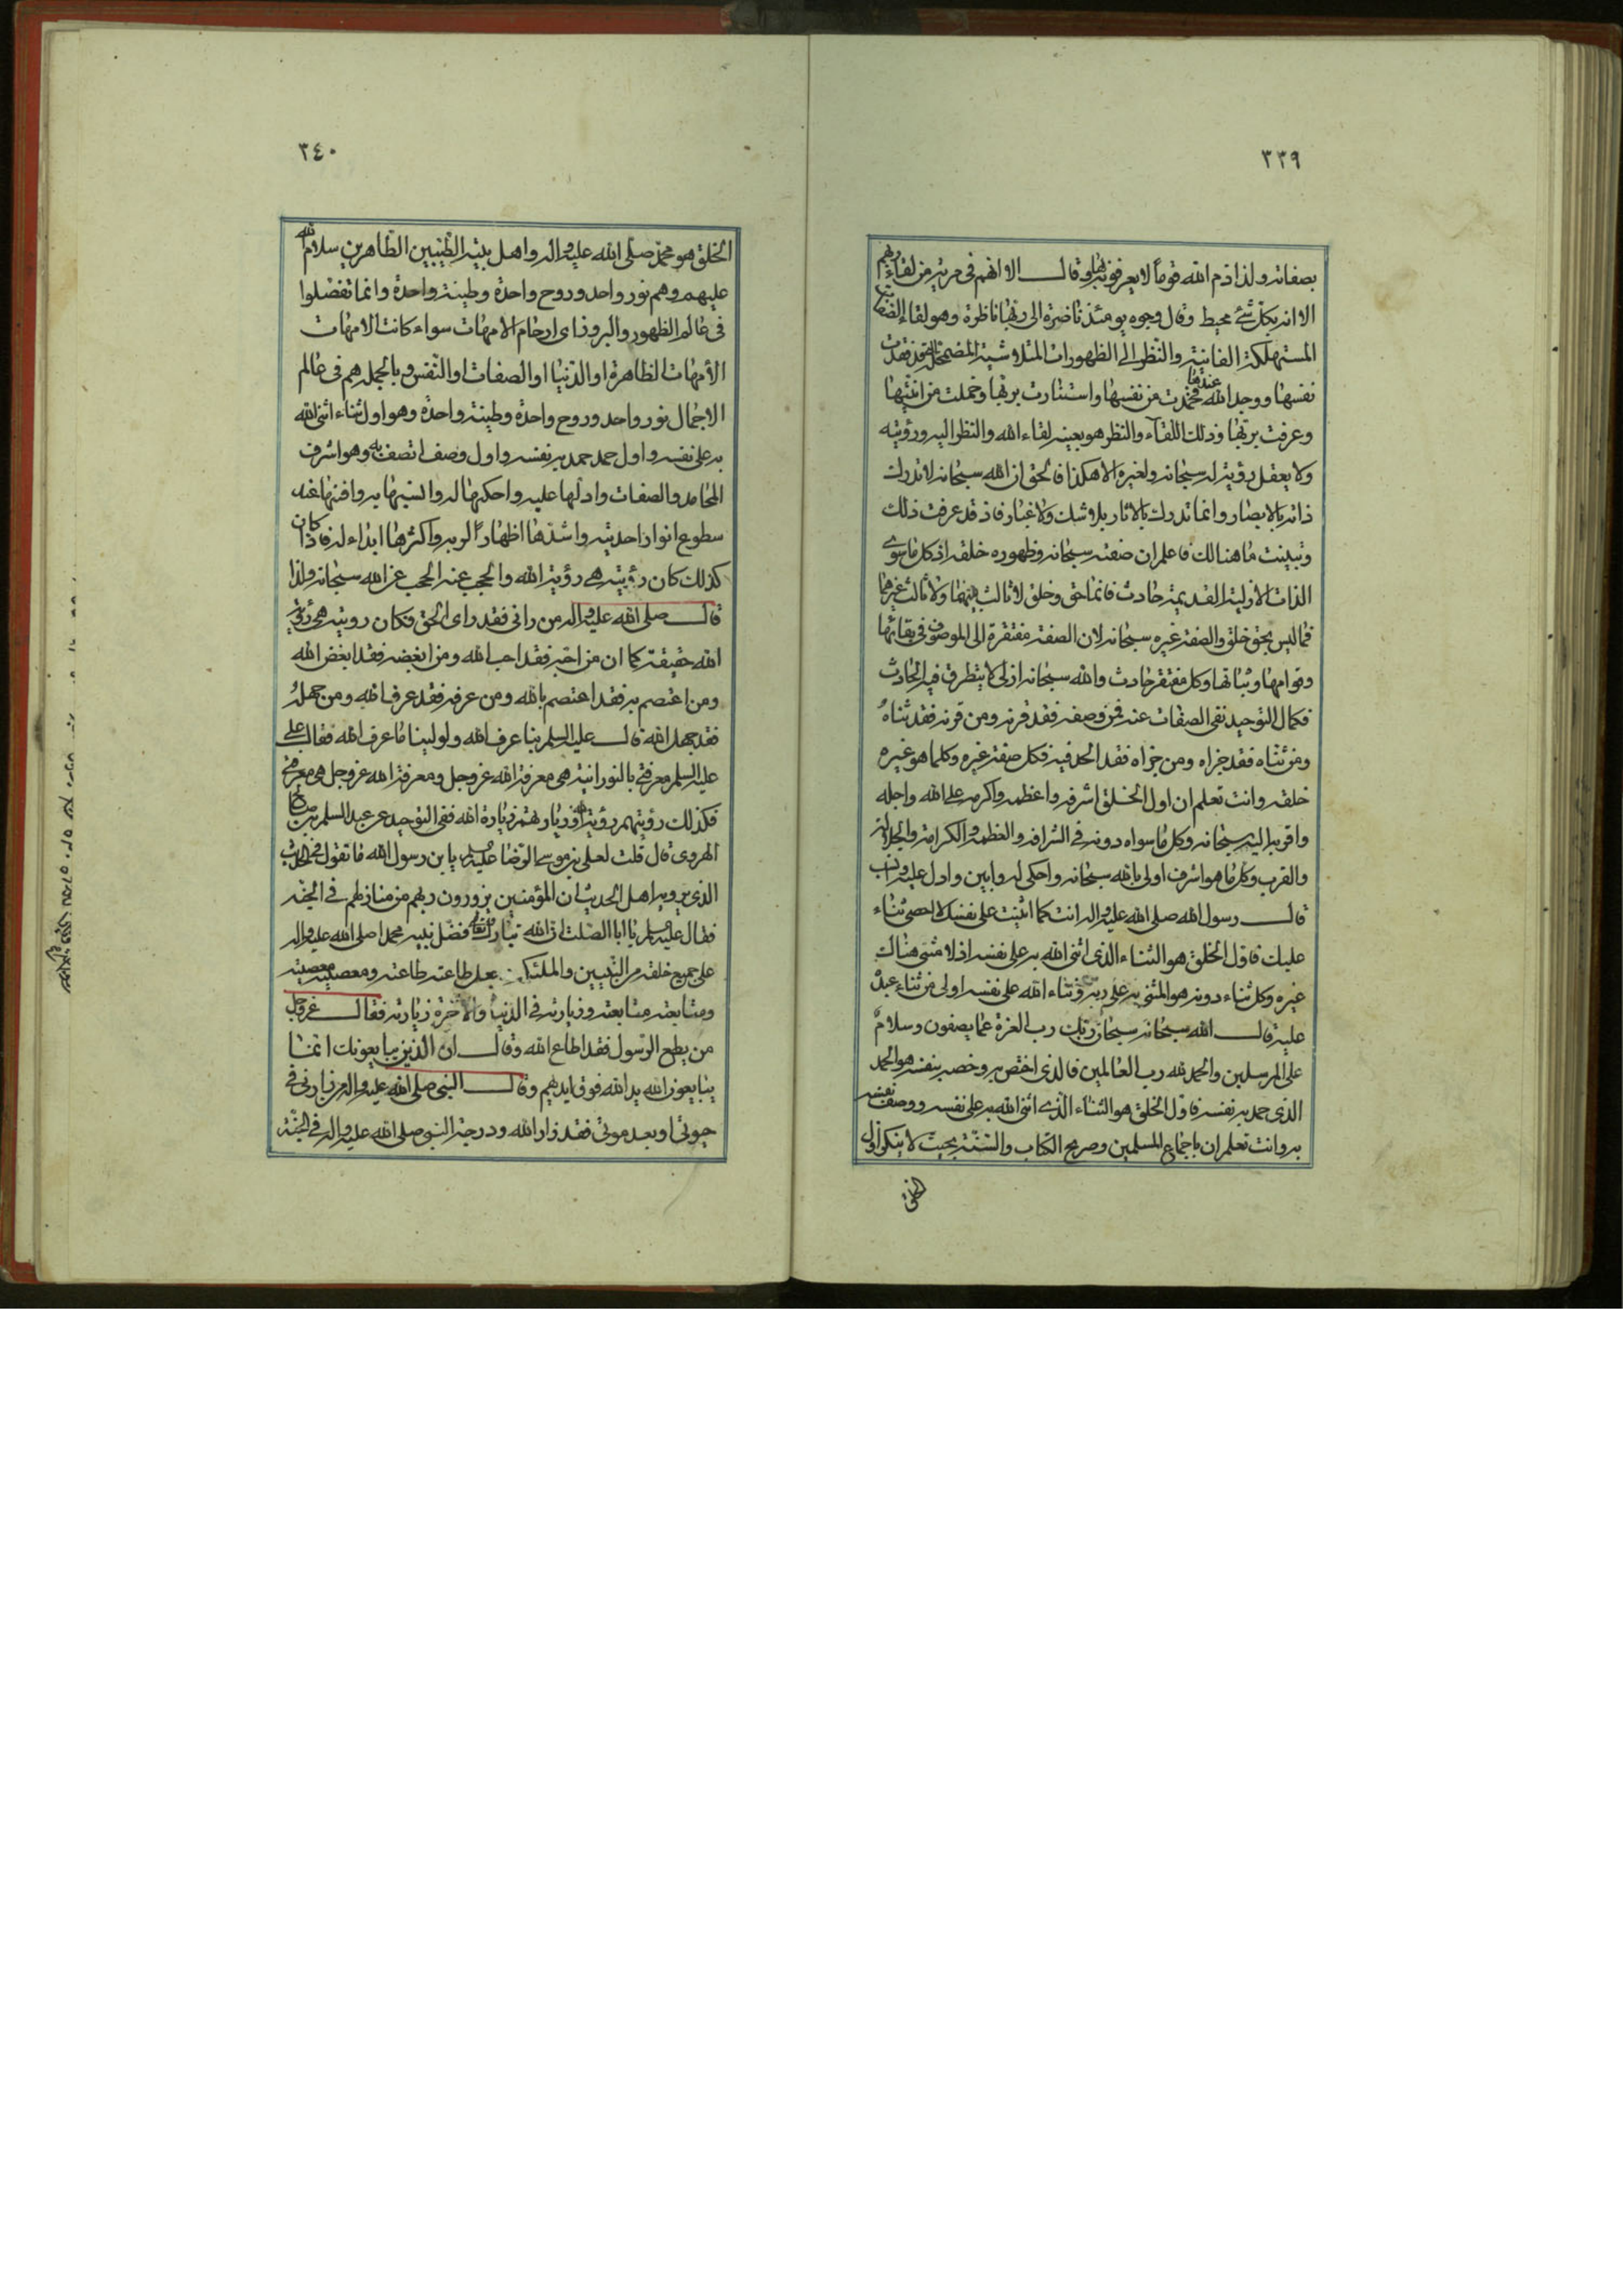 ٣٣٩
بصفاته ولذا ذم الله قوماً لا يعرفونه بها وقال الا انهم فى مرية من لقاء ربهم
الا انه بكل شئ محيط وقال وجوه يومئذ ناضرة الى ربها ناظرة وهو لقاء الصفات
المستهلكة الفانية والنظر الى الظهورات المتلاشية المضمحلة فقدت
نفسها ووجد الله عندها فتجردت عن نفسها واستنارت بربها وخملت من انيتها
وعرفت بربها وذلك اللقاء والنظر هو بعينه لقاء الله والنظر اليه ورؤيته
ولا يعقل رؤية له سبحانه ولغيره الا هكذا فالحق ان الله سبحانه لا تدرك
ذاته بالابصار وانما تدرك بالاثار بلا شك ولا غبار فاذ قد عرفت ذلك
وتبينت ما هنالك فاعلم ان صفته سبحانه وظهوره خلقه اذ كل ما سوى
الذات الازلية القديمة حادث فانما حق وخلق لا ثالث بينهما ولا ثالث غيرهما
فما ليس بحق خلق والصفة غيره سبحانه لان الصفة مفتقرة الى الموصوف فى بقائها
وقوامها وثباتها وكل مفتقر حادث والله سبحانه ازلى لا يتطرق فيه الحادث
فكمال التوحيد نفى الصفات عنه فمن وصفه فقد قرنه ومن قرنه فقد ثناه
ومن ثناه فقد جزاه ومن جزاه فقد الحد فيه فكل صفة غيره وكلما هو غيره
خلقه وانت تعلم ان اول الخلق اشرفه واعظمه واكرمه على الله واجله
واقربه اليه سبحانه وكل ما سواه دونه فى الشرافة والعظمة والكرامة والجلالة
والقرب وكل ما هو اشرف اولى بالله سبحانه واحكى له وابين وادل عليه وانسب
قال رسول الله صلى الله عليه واله انت كما اثنيت على نفسك لا احصى ثناء
عليك فاول الخلق هو الثناء الذى اثنى الله به على نفسه اذ لا مثنى هناك
غيره وكل ثناء دونه هو المثنى به على ربه وثناء الله على نفسه اولى من ثناء عبده
عليه قال الله سبحانه سبحان ربك رب العزة عما يصفون وسلام
على المرسلين والحمد لله رب العالمين فالذى اختص به وخصه بنفسه هو الحمد
الذى حمد به نفسه فاول الخلق هو الثناء الذى اثنى الله به على نفسه ووصف نفسه
به وانت تعلم ان باجماع المسلمين وصريح الكتاب والسنة بحيث لا ينكر اول
الخلق
٣٤٠
الخلق هو محمد صلى الله عليه واله واهل بيته الطيبين الطاهرين سلام الله
عليهم وهم نور واحد وروح واحدة وطينة واحدة وانما تفضلوا
فى عالم الظهور والبروز اى ارحام الامهات سواء كانت الامهات
الأمهات الظاهرة او الدنيا او الصفات او النفس وبالجملة هم فى عالم
الاجمال نور واحد وروح واحدة وطينة واحدة وهو اول ثناء اثنى الله
به على نفسه واول حمد حمد به نفسه واول وصف اتصف به وهو اشرف
المحامد والصفات وادلها عليه واحكيها له وانسبها به وافنيها عند
سطوع انوار احديته واشدها اظهاراً لربه واكثرها ابداء له فاذا كان
كذلك كان رؤيته هى رؤية الله والحجب عنه الحجب عن الله سبحانه ولذا
قال صلى الله عليه واله من رانى فقد راى الحق فكان رويته هى رؤية
الله حقيقة كما ان من احبه فقد احب الله ومن ابغضه فقد ابغض الله
ومن اعتصم به فقد اعتصم بالله ومن عرفه فقد عرف الله ومن جهله
فقد جهل الله قال عليه السلم بنا عرف الله ولولينا ما عرف الله فقال على
عليه السلم معرفتى بالنورانية هى معرفة الله عز وجل ومعرفة الله عز وجل هى معرفتى
فكذلك رؤيتهم رؤية الله وزيارتهم زيارة الله ففى التوحيد عن عبد السلم بن صالح
الهروى قال قلت لعلى بن موسى الرضا عليه السلم يا بن رسول الله ما تقول فى الحديث
الذى يرويه اهل الحديث ان المؤمنين يزورون ربهم من منازلهم فى الجنة
فقال عليه السلم يا ابا الصلت ان الله تبارك وتعالى فضل نبيه محمدا صلى الله عليه واله
على جميع خلقه من النبيين والملئكة وجعل طاعته طاعته ومعصيته معصيته
ومتابعته متابعته وزيارته فى الدنيا والاخرة زيارته فقال عز وجل
من يطع الرسول فقد اطاع الله وقال ان الذين يبايعونك انما
يبايعون الله يد الله فوق ايديهم وقال النبى صلى الله عليه واله من زارنى فى
حيوتى او بعد موتى فقد زار الله ودرجة النبى صلى الله عليه واله فى الجنة